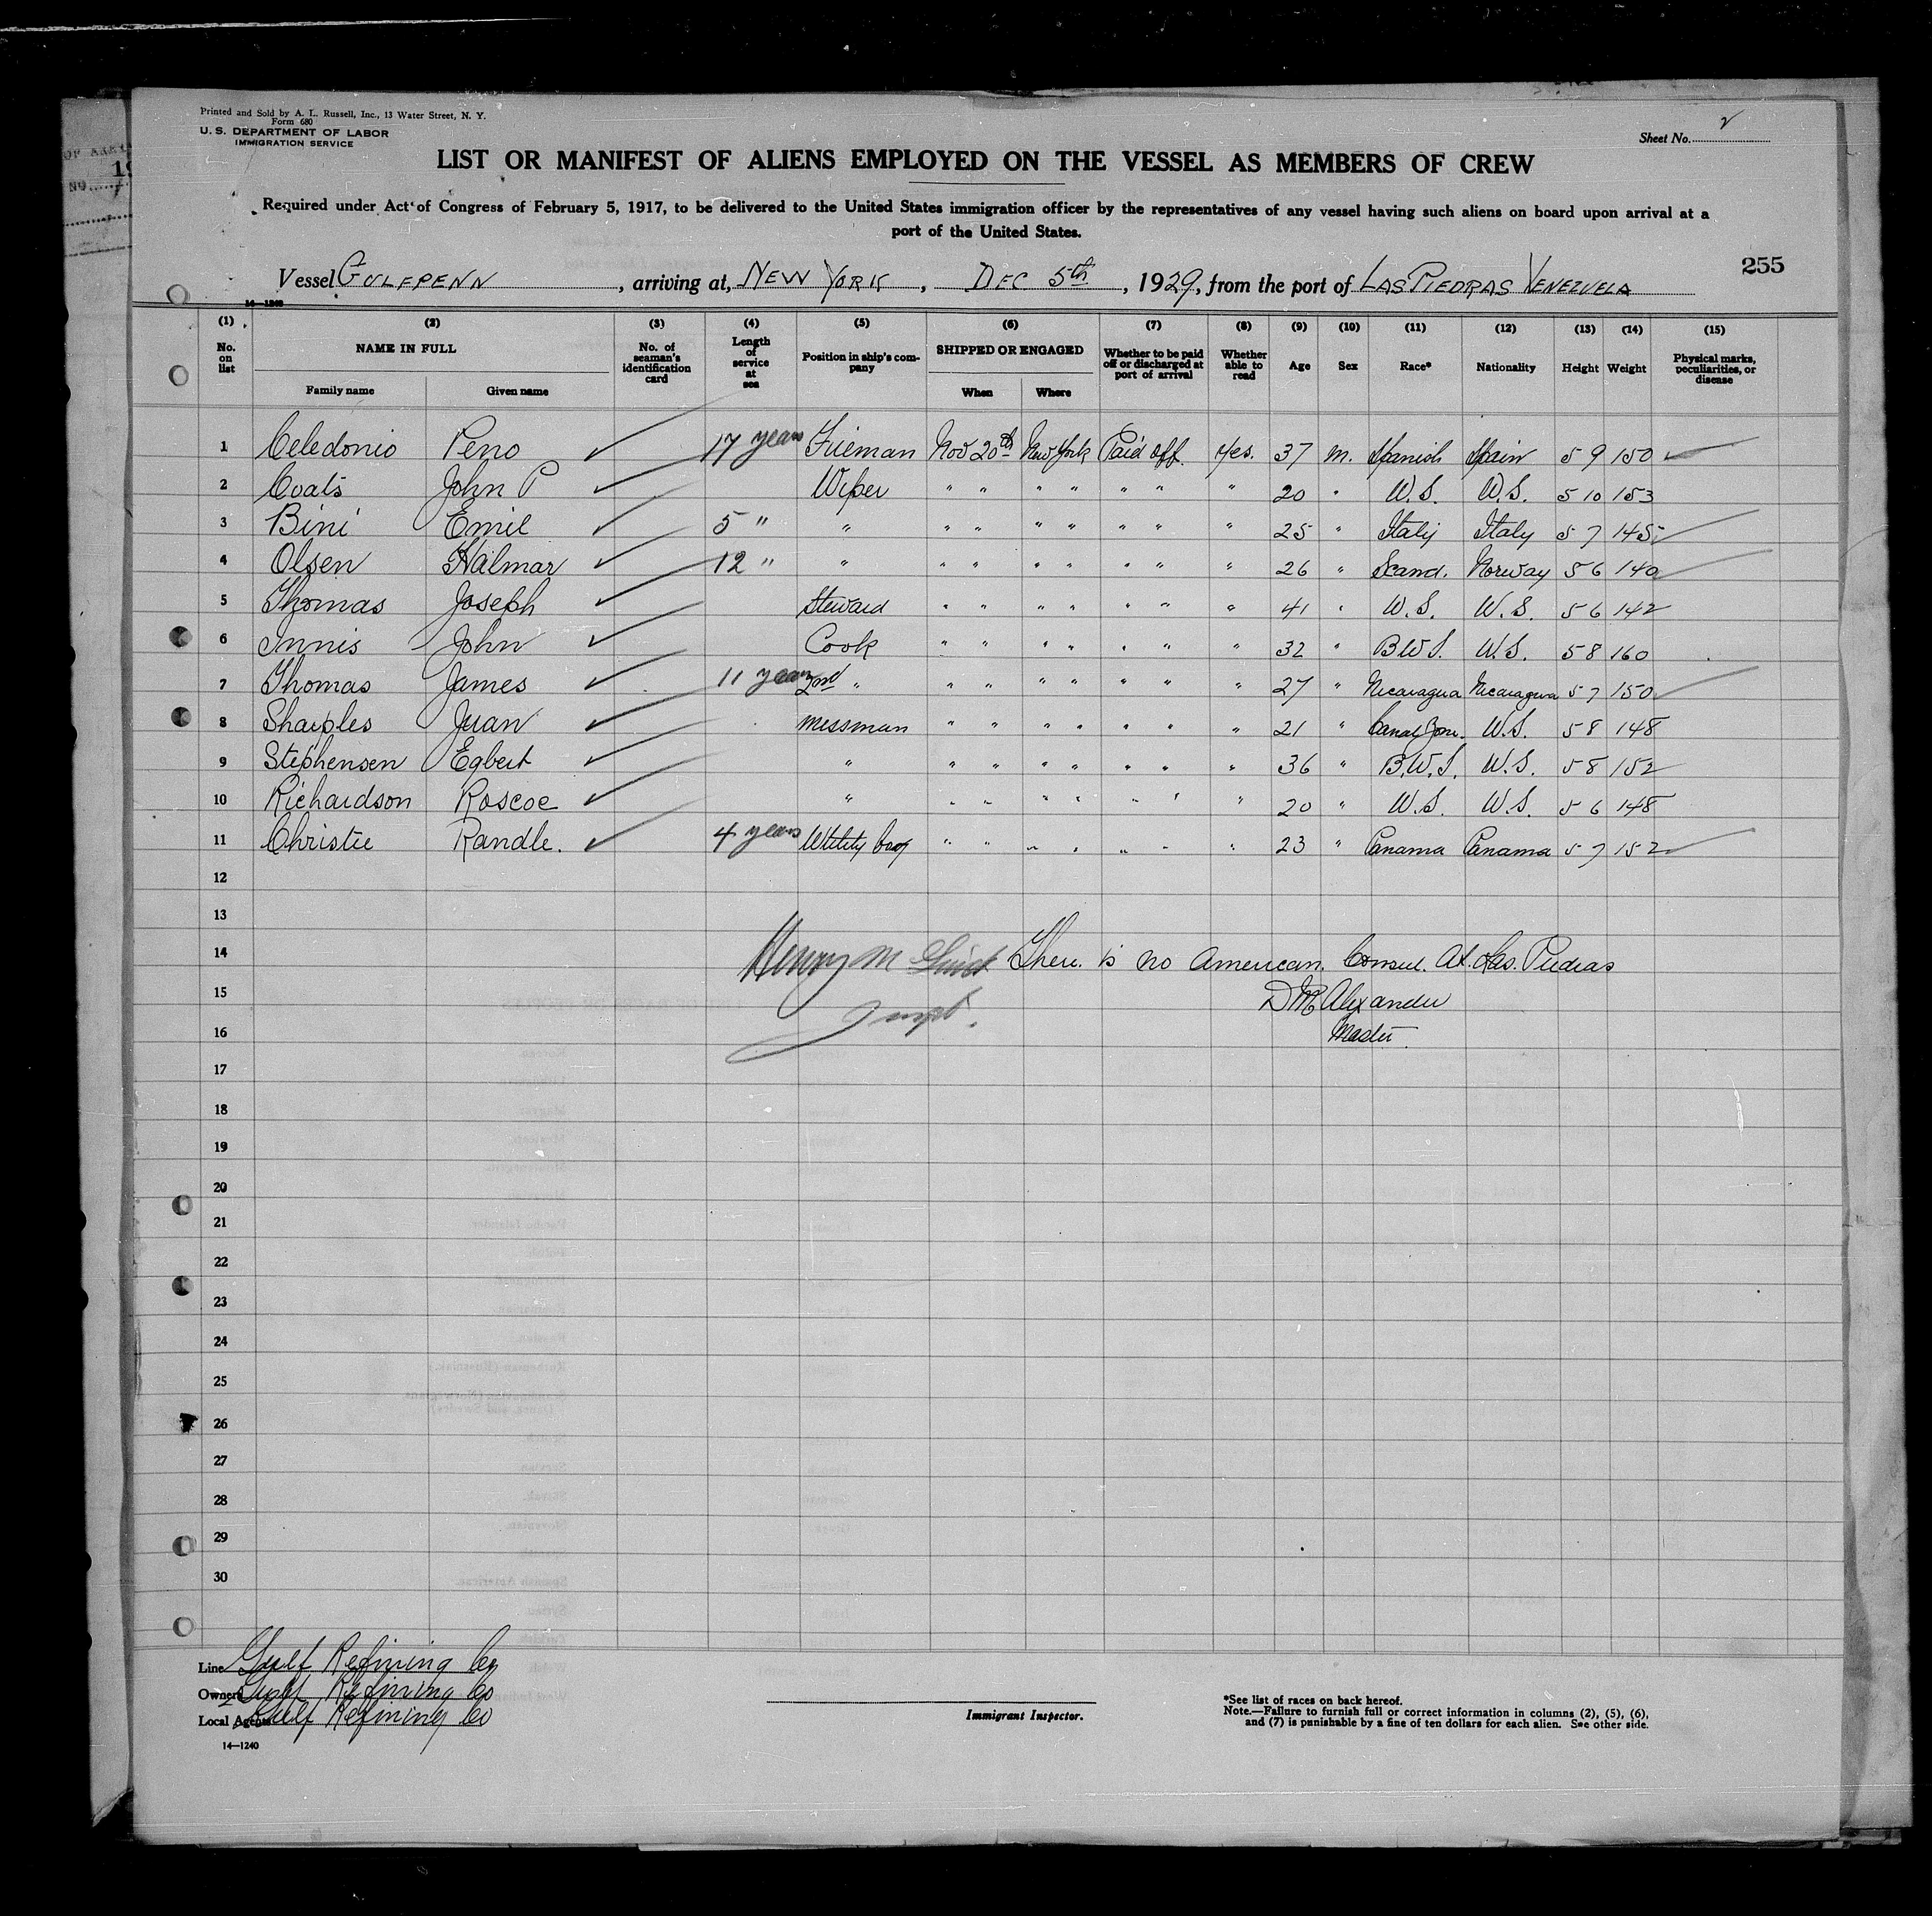 Printed and Sold by A. L. Russell, Inc., 13 Water Street, N. Y.
Form 680
U. S. DEPARTMENT OF LABOR
IMMIGRATION SERVICE
Sheet No. 2
LIST OR MANIFEST OF ALIENS EMPLOYED ON THE VESSEL AS MEMBERS OF CREW
Required under Act of Congress of February 5, 1917, to be delivered to the United States immigration officer by the representatives of any vessel having such aliens on board upon arrival at a
port of the United States.
255
Vessel GULFPENN, arriving at, NEW YORK, DEC 5th, 1929, from the port of LAS PIEDRAS VENEZUELA
14—1240
(1) (2) (3) (4) (5) (6) (7) (8) (9) (10) (11) (12) (13) (14) (15)
No. on list NAME IN FULL No. of seaman's identification card Length of service at sea Position in ship's company SHIPPED OR ENGAGED Whether to be paid off or discharged at port of arrival Whether able to read Age Sex Race* Nationality Height Weight Physical marks, peculiarities, or disease
Family name Given name When Where
1 Celedonio Peno 17 years Fireman Nov 20th New York Paid off. Yes. 37 M. Spanish Spain 5 9 150
2 Coats John P Wiper " " " " " " " 20 " U.S. U.S. 5 10 153
3 Bini Emil 5 " " " " " " " " " 25 " Italy Italy 5 7 145
4 Olsen Halmar 12 " " " " " " " " " 26 " Scand. Norway 5 6 140
5 Thomas Joseph Steward " " " " " " " 41 " U.S. U.S. 5 6 142
6 Innis John Cook " " " " " " " 32 " B.W.I. U.S. 5 8 160
7 Thomas James 11 years 2nd " " " " " " " " 27 " Nicaragua Nicaragua 5 7 150
8 Sharples Juan Messman " " " " " " " 21 " Canal Zone. U.S. 5 8 148
9 Stephensen Egbert " " " " " " " " 36 " B.W.I. U.S. 5 8 152
10 Richardson Roscoe " " " " " " " " 20 " U.S. U.S. 5 6 148
11 Christie Randle. 4 years Utility boy " " " " " " " 23 " Panama Panama 5 7 152
12
13
14 Henry M There is no American Consul. At. Las. Piedras
15 Inspt. D M Alexander
16 Master
17
18
19
20
21
22
23
24
25
26
27
28
29
30
Line Gulf Refining Co
Owners Gulf Refining Co
Local Agents Gulf Refining Co
14—1240
Immigrant Inspector.
*See list of races on back hereof.
Note.—Failure to furnish full or correct information in columns (2), (5), (6),
and (7) is punishable by a fine of ten dollars for each alien. See other side.